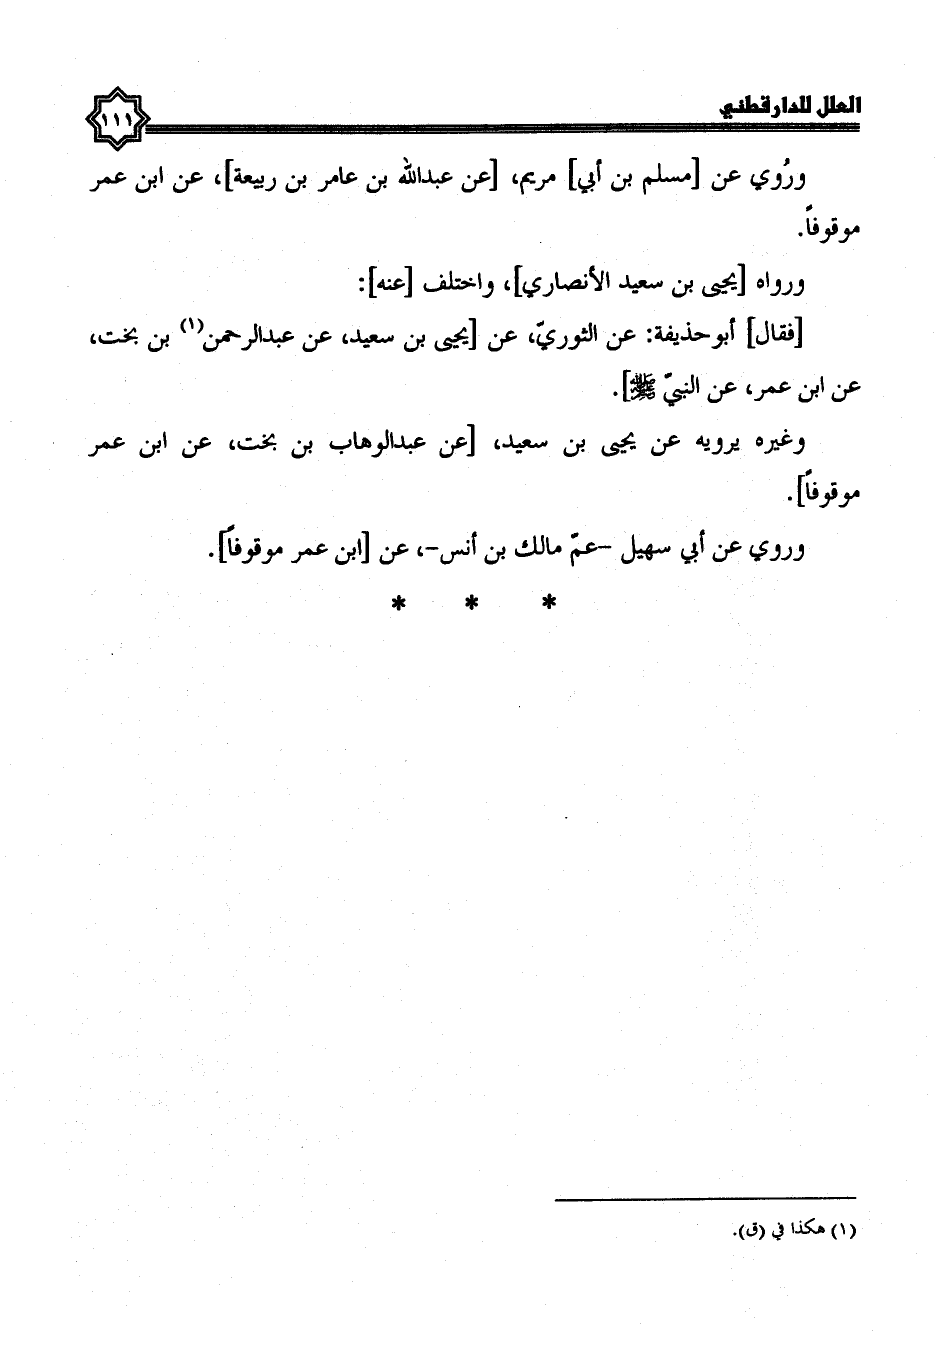 العلل للدارقطني
١١١
ورُوي عن [مسلم بن أبي] مريم، [عن عبدالله بن عامر بن ربيعة]، عن ابن عمر
موقوفاً.
ورواه [يحيى بن سعيد الأنصاري]، واختلف [عنه]:
[فقال] أبوحذيفة: عن الثوريّ، عن [يحيى بن سعيد، عن عبدالرحمن(١) بن بخت،
عن ابن عمر، عن النبيّ ﷺ].
وغيره يرويه عن يحيى بن سعيد، [عن عبدالوهاب بن بخت، عن ابن عمر
موقوفاً].
وروي عن أبي سهيل -عمّ مالك بن أنس-، عن [ابن عمر موقوفاً].
* * *
(١) هكذا في (ق).